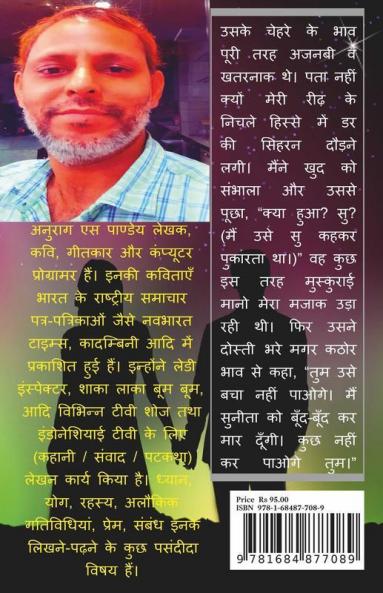 उसके चेहरे के भाव
पूरी तरह अजनबी व
खतरनाक थे। पता नहीं
क्यों मेरी रीढ़ के
निचले हिस्से में डर
की सिहरन दौड़ने
लगी। मैंने खुद को
संभाला और उससे
पूछा, “क्या हुआ? सु?
(मैं उसे सु कहकर
पुकारता था।)” वह कुछ
इस तरह मुस्कुराई
मानो मेरा मजाक उड़ा
रही थी। फिर उसने
दोस्ती भरे मगर कठोर
भाव से कहा, “तुम उसे
बचा नहीं पाओगे। मैं
सुनीता को बूँद-बूँद कर
मार दूँगी। कुछ नहीं
कर पाओगे तुम।”
अनुराग एस पाण्डेय लेखक,
कवि, गीतकार और कंप्यूटर
प्रोग्रामर हैं। इनकी कविताएँ
भारत के राष्ट्रीय समाचार
पत्र-पत्रिकाओं जैसे नवभारत
टाइम्स, कादम्बिनी आदि में
प्रकाशित हुई हैं। इन्होंने लेडी
इंस्पेक्टर, शाका लाका बूम बूम,
आदि विभिन्न टीवी शोज तथा
इंडोनेशियाई टीवी के लिए
(कहानी / संवाद / पटकथा)
लेखन कार्य किया है। ध्यान,
योग, रहस्य, अलौकिक
गतिविधियां, प्रेम, संबंध इनके
लिखने-पढ़ने के कुछ पसंदीदा
विषय हैं।
Price Rs 95.00
ISBN 978-1-68487-708-9
9 781684 877089